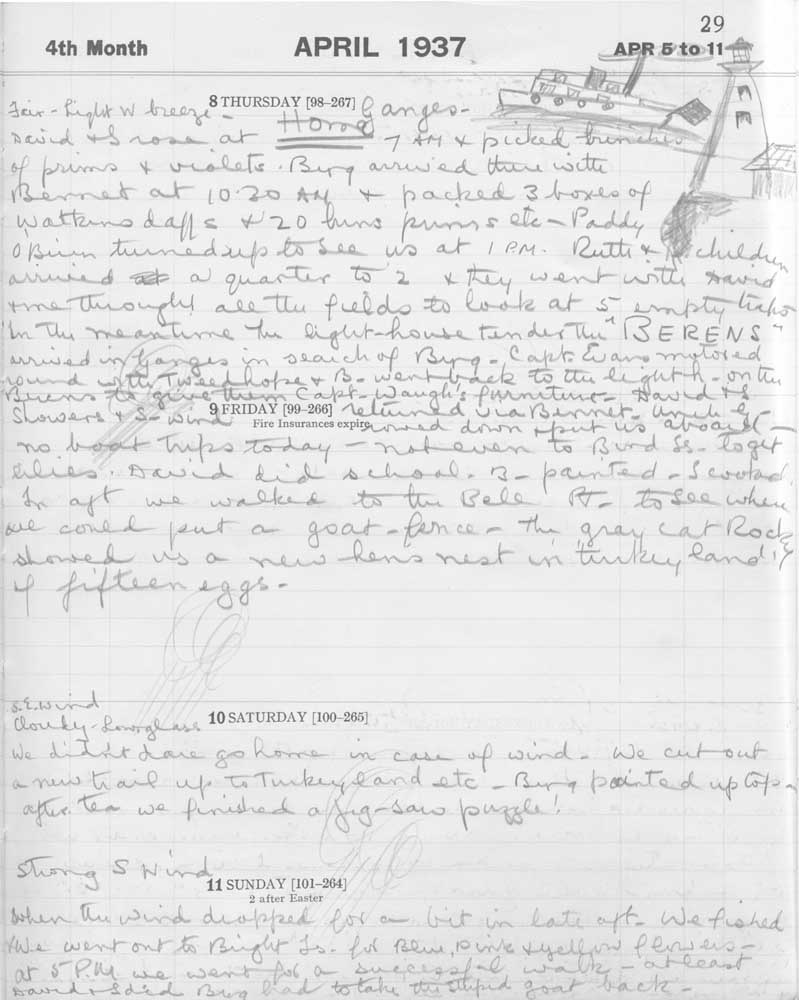 29
4th Month APRIL 1937 APR 5 to 11
8 THURSDAY [98–267] Ganges-
Fair - Light W breeze - Home
David & I rose at 7 AM & picked bunches
of prims & violets. Byrg arrived there with
Bennet at 10.30 AM & packed 3 boxes of
Watkins daffs & 20 buns prims etc - Paddy
O Brien turned up to see us at 1 P.M. Ruth & children
arrived at a quarter to 2 & they went with David
& me through all the fields to look at 5 empty
In the meantime the light-house tender the "BERENS"
arrived in Ganges in search of Byrg - Capt. Evans motored
round with Tweedhope & B- went back to the light h- on the
Berens to give them Capt- Waugh's furniture - David & I
returned via Bennet - 
9 FRIDAY [99–266]
Fire Insurances expire
Showers & S- wind
rowed down & put us aboard -
no boat trips today - not even to Bird Is. to get
lilies. David did school. B- painted - I cooked.
In aft we walked to the Bell Pt- to see where
we could put a goat-fence - the gray cat Rocky
showed us a new hens nest in turkey land!
of fifteen eggs -
S.E. Wind
Cloudy - Low glass
10 SATURDAY [100–265]
We didn't dare go home in case of wind - We cut out
a new trail up to Turkeyland etc - Byrg painted up top -
after tea we finished a Jig-saw puzzle!
Strong S Wind
11 SUNDAY [101–264]
2 after Easter
When the wind dropped for a bit in late aft - We fished
& We went out to Bright Is. for Blue, Pink & yellow flowers -
at 5 P.M we went for a successful walk - at least
David & I did Byrg had to take the stupid goat back -